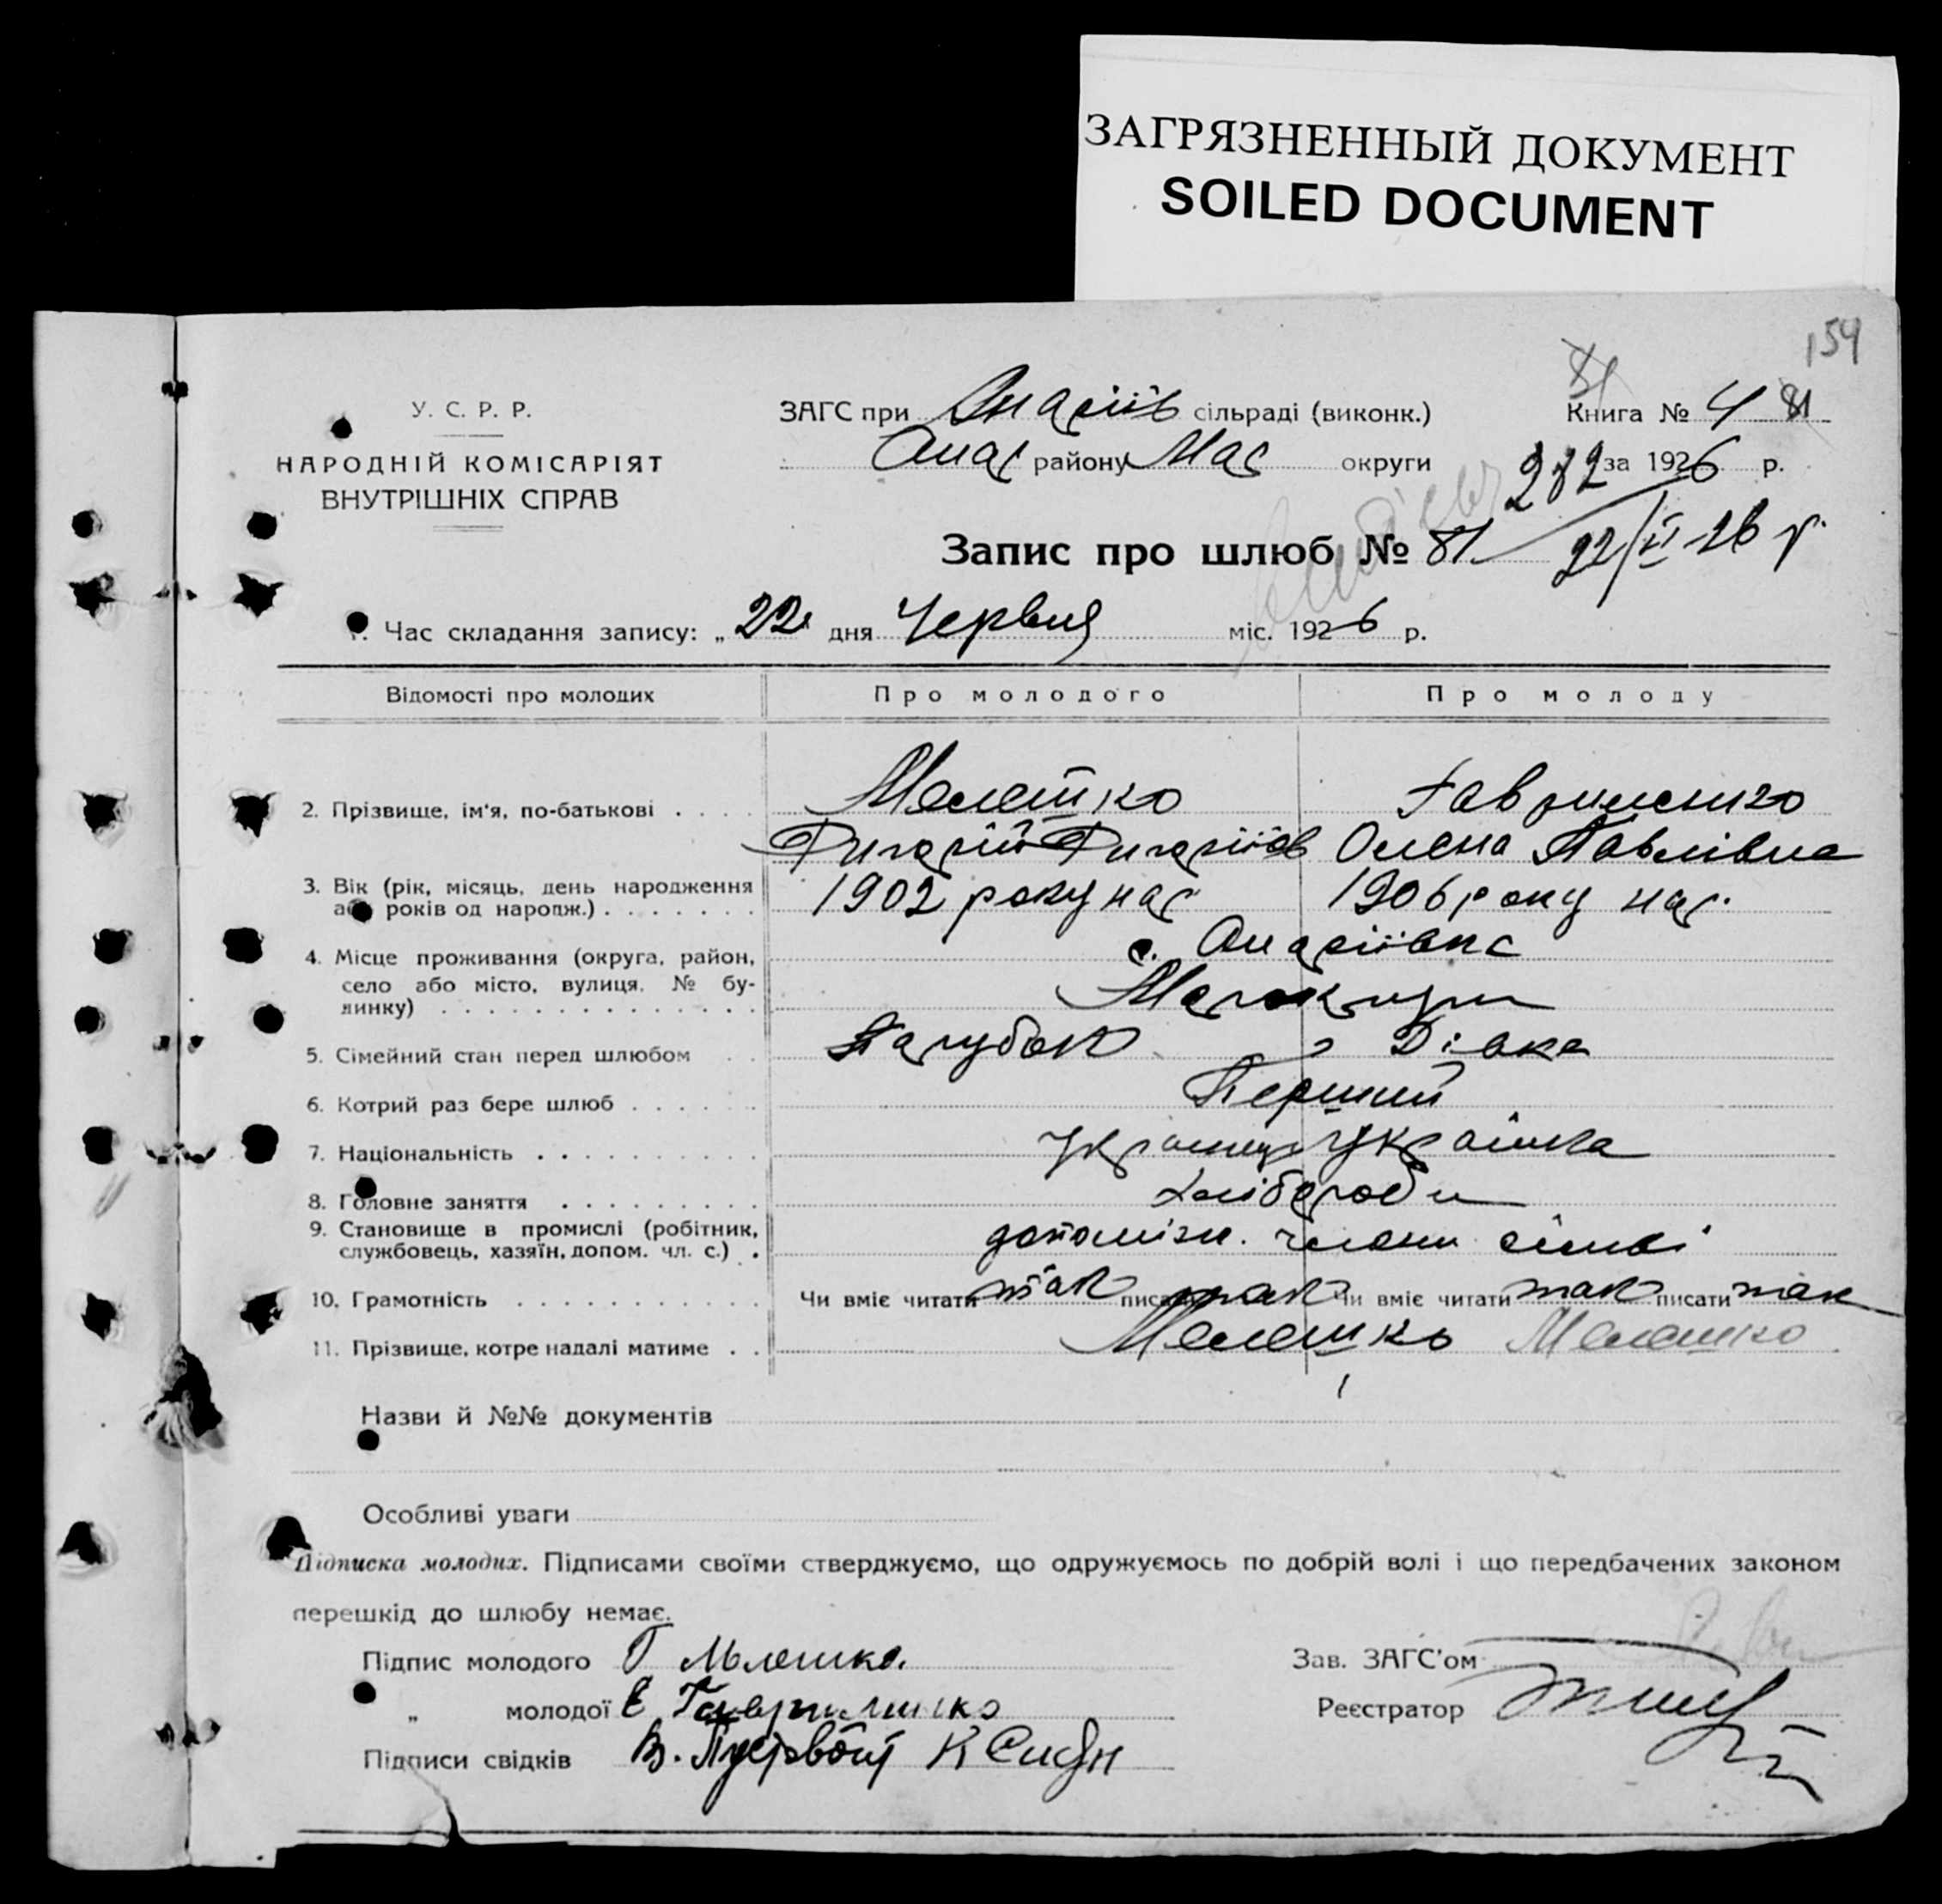 ЗАГРЯЗНЕННЫЙ ДОКУМЕНТ
SOILED DOCUMENT
154
У. С. Р. Р.
НАРОДНІЙ КОМІСАРІЯТ
ВНУТРІШНІХ СПРАВ
ЗАГС при сільраді (виконк.)
району Мас округи
Книга № 4 81
282 за 1926 р.
Запис про шлюб № 81 22/VI 26 р.
1. Час складання запису: „22" дня Червня міс. 1926 р.
Відомості про молодих Про молодого Про молоду
2. Прізвище, ім'я, по-батькові Мелешко Гавриленко
Григорій Григоріїв Олена Павлівна
3. Вік (рік, місяць, день народження 1902 року нар 1906 року нар.
або років од народж.)
4. Місце проживання (округа, район, с.
село або місто, вулиця, № бу-
динку)
5. Сімейний стан перед шлюбом Парубок Дівка
6. Котрий раз бере шлюб Перший
7. Національність Українець Українка
8. Головне заняття Хлібороби
9. Становище в промислі (робітник, допоміжн. члени сімьї
службовець, хазяїн, допом. чл. с.)
10. Грамотність Чи вміє читати так писати так Чи вміє читати так писати так
11. Прізвище, котре надалі матиме Мелешко Мелешко
Назви й №№ документів
Особливі уваги
Підписка молодих. Підписами своїми стверджуємо, що одружуємось по добрій волі і що передбачених законом
перешкід до шлюбу немає.
Підпис молодого Г Мелешко. Зав. ЗАГС'ом
„ молодої Е Гавриленко Реєстратор
Підписи свідків В.